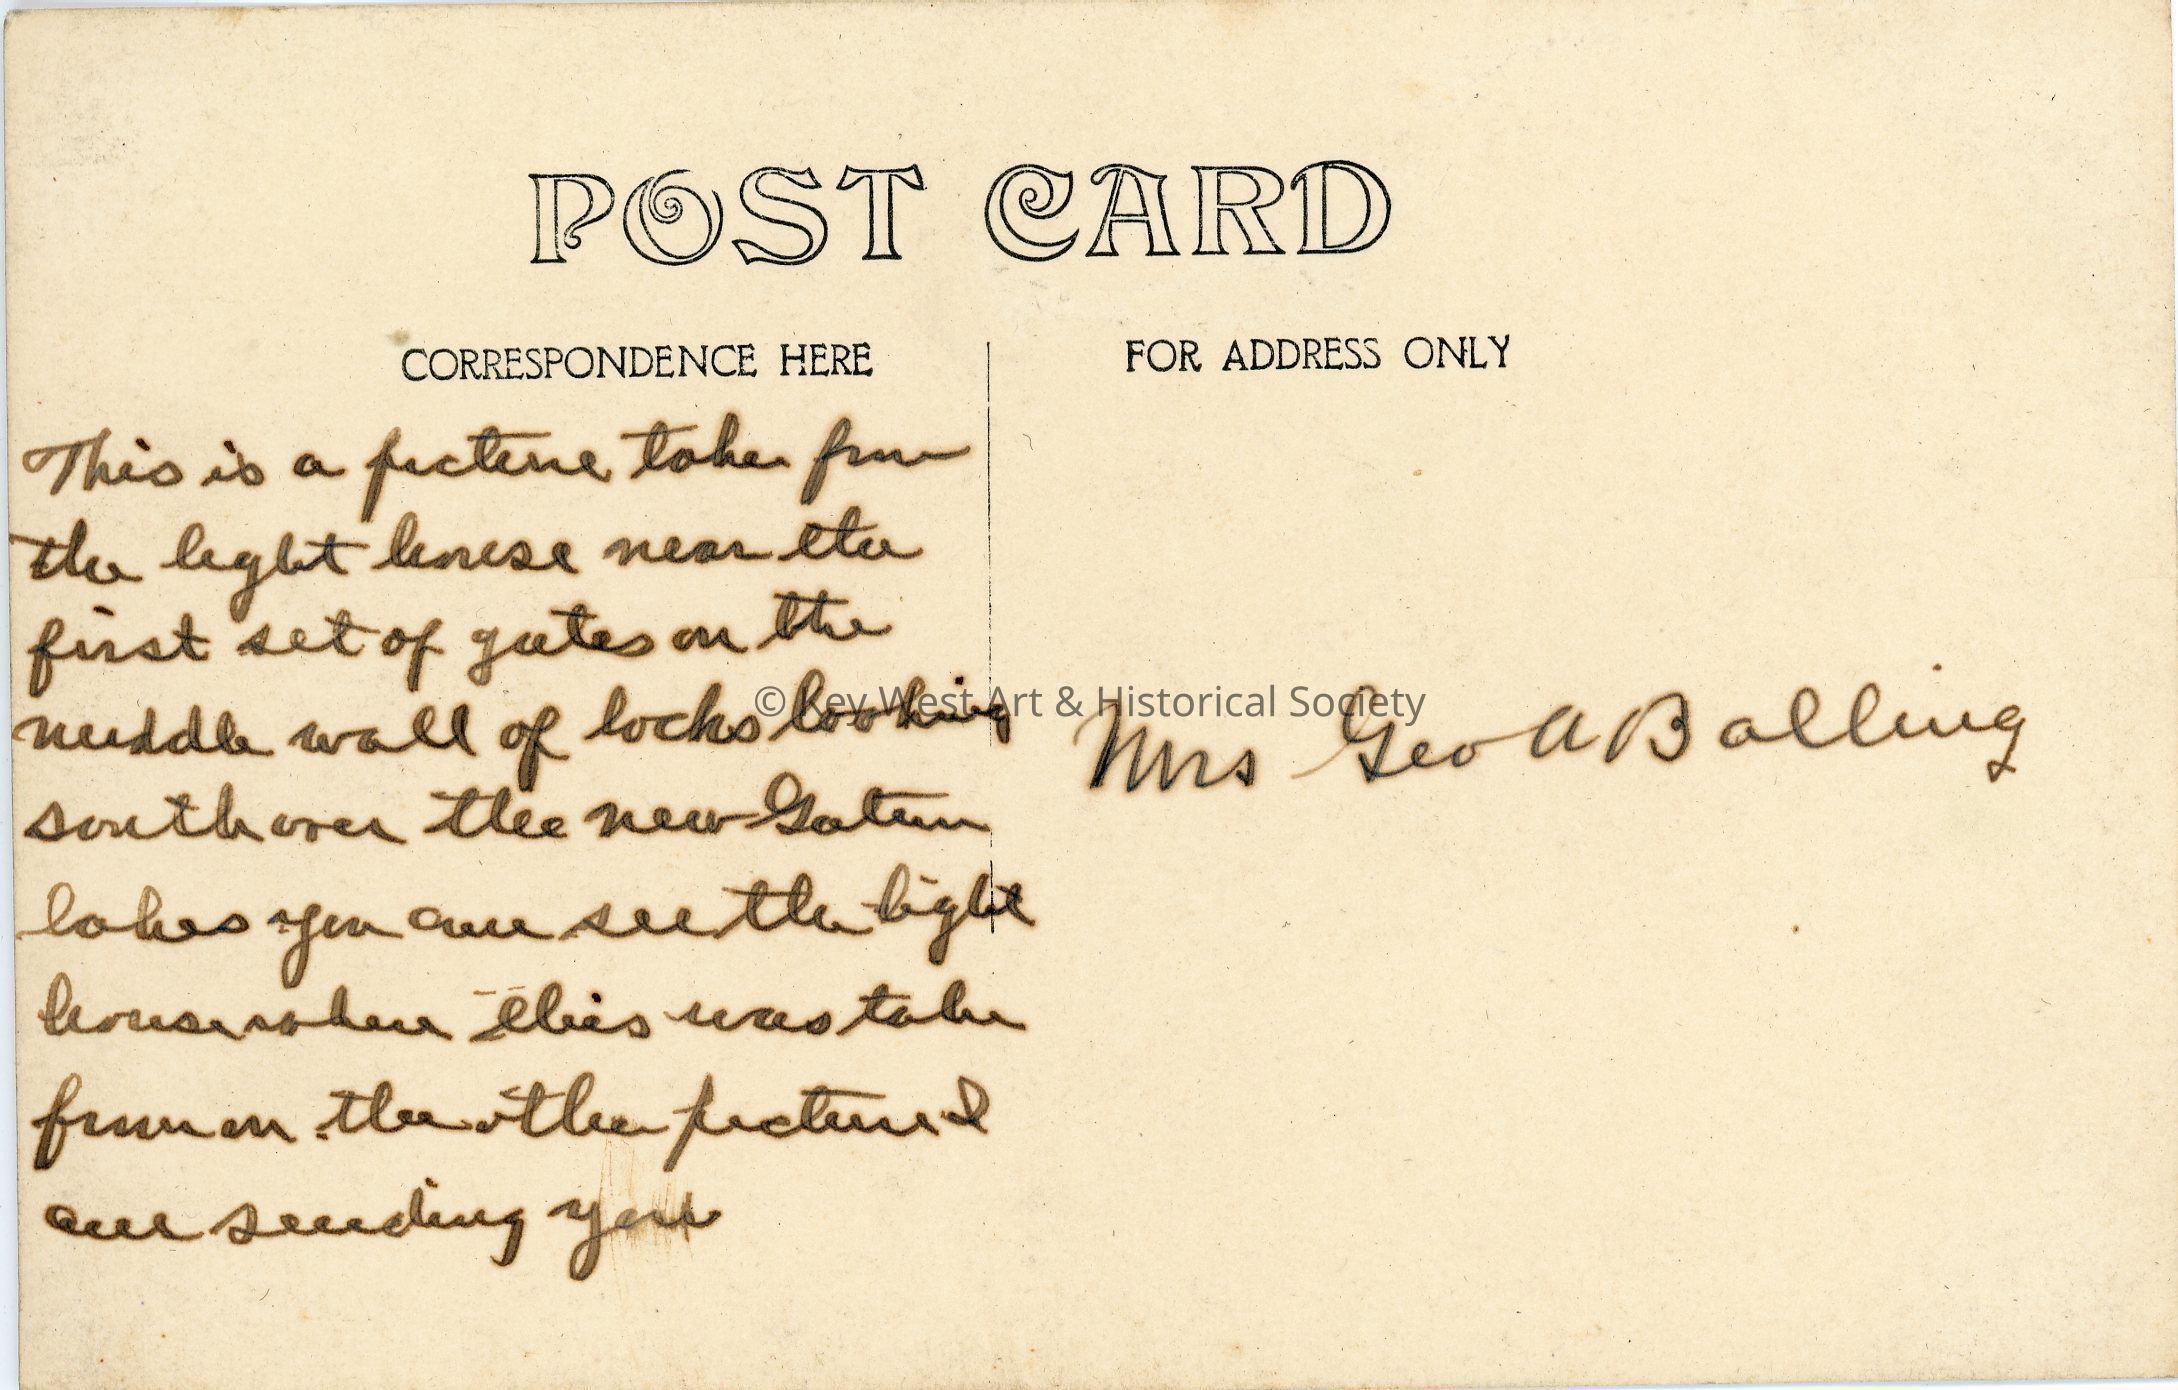 POST CARD
CORRESPONDENCE HERE
FOR ADDRESS ONLY
This is a picture taken from
the light house near the
first set of gates on the
middle wall of locks looking
south over the new Gatun
lakes you can see the light
house where this was taken
from on the other picture I
am sending you
Mrs Geo A Balling
© Key West Art & Historical Society